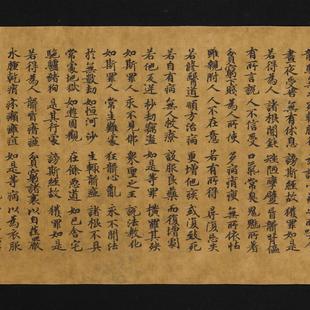 晝夜受苦 無有休息 謗斯經故 獲罪如是
若得為人 諸根闇鈍 矬陋攣躄 盲聾背傴
有所言說 人不信受 口氣常臭 鬼魅所著
貧窮下賤 為人所使 多病痟瘦 無所依怙
雖親附人 人不在意 若有所得 尋復忘失
若修醫道 順方治病 更增他疾 或復致死
若自有病 無人救療 設服良藥 而復增劇
若他反逆 抄劫竊盜 如是等罪 橫羅其殃
如斯罪人 永不見佛 衆聖之王 說法教化
如斯罪人 常生難處 狂聾心亂 永不聞法
於無數劫 如恒河沙 生輒聾瘂 諸根不具
常處地獄 如遊園觀 在餘惡道 如己舍宅
駝驢猪狗 是其行處 謗斯經故 獲罪如是
若得為人 聾盲瘖瘂 貧窮諸衰 以自莊嚴
水腫乾痟 疥癩癰疽 如是等病 以為衣服